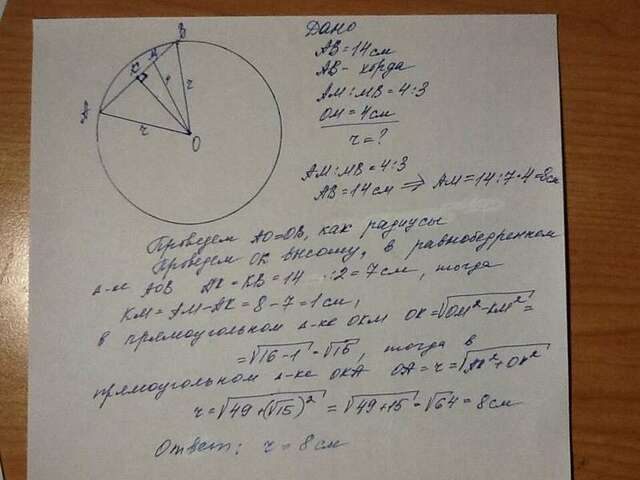 Дано
AB = 14 см
AB - хорда
AM : MB = 4 : 3
OM = 4 см
r = ?
AM : MB = 4 : 3
AB = 14 см ⇒ AM = 14 : 7 · 4 = 8 см
B
M
K
A
4
r
r
O
Проведем AO = OB, как радиусы
Проведем OK высоту, в равнобедренном
Δ-ке AOB AK = KB = 14 : 2 = 7 см, тогда
KM = AM - AK = 8 - 7 = 1 см,
в прямоугольном Δ-ке OKM OK = √OM² - KM² =
= √16 - 1 = √15, тогда в
прямоугольном Δ-ке OKA OA = r = √AK² + OK²
r = √49 + (√15)² = √49 + 15 = √64 = 8 см
Ответ: r = 8 см